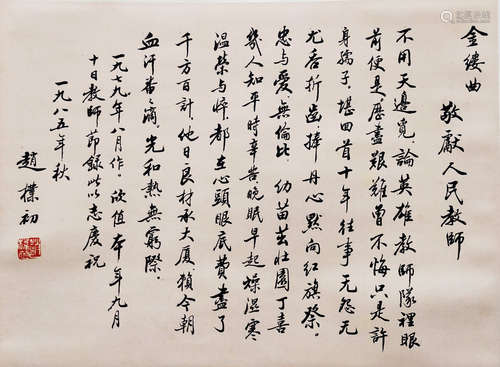 金缕曲
敬献人民教师
不用天边觅论英雄教师队里眼
前便是历尽艰难曾不悔只是许
身孺子堪回首十年往事无怨无
尤吞折齿捧丹心默向红旗祭
忠与爱无伦比幼苗茁壮园丁喜
几人知平时辛苦晚眠早起燥湿寒
温荣与悴都在心头眼底费尽了
千方百计他日良材承大厦赖今朝
血汗番番滴光和热无穷际
一九七九年八月作欣值本年九月
十日教师节录此以志庆祝
一九八五年秋
赵朴初